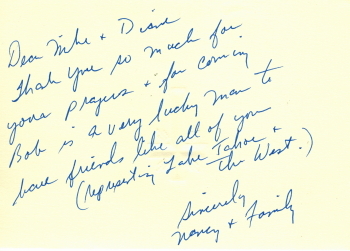 Dear Mike + Diane
Thank you so much for
your prayers & for coming
Bob is a very lucky man to
have friends like all of you
(representing Lake Tahoe +
the West.)
Sincerely
Nancy + Family